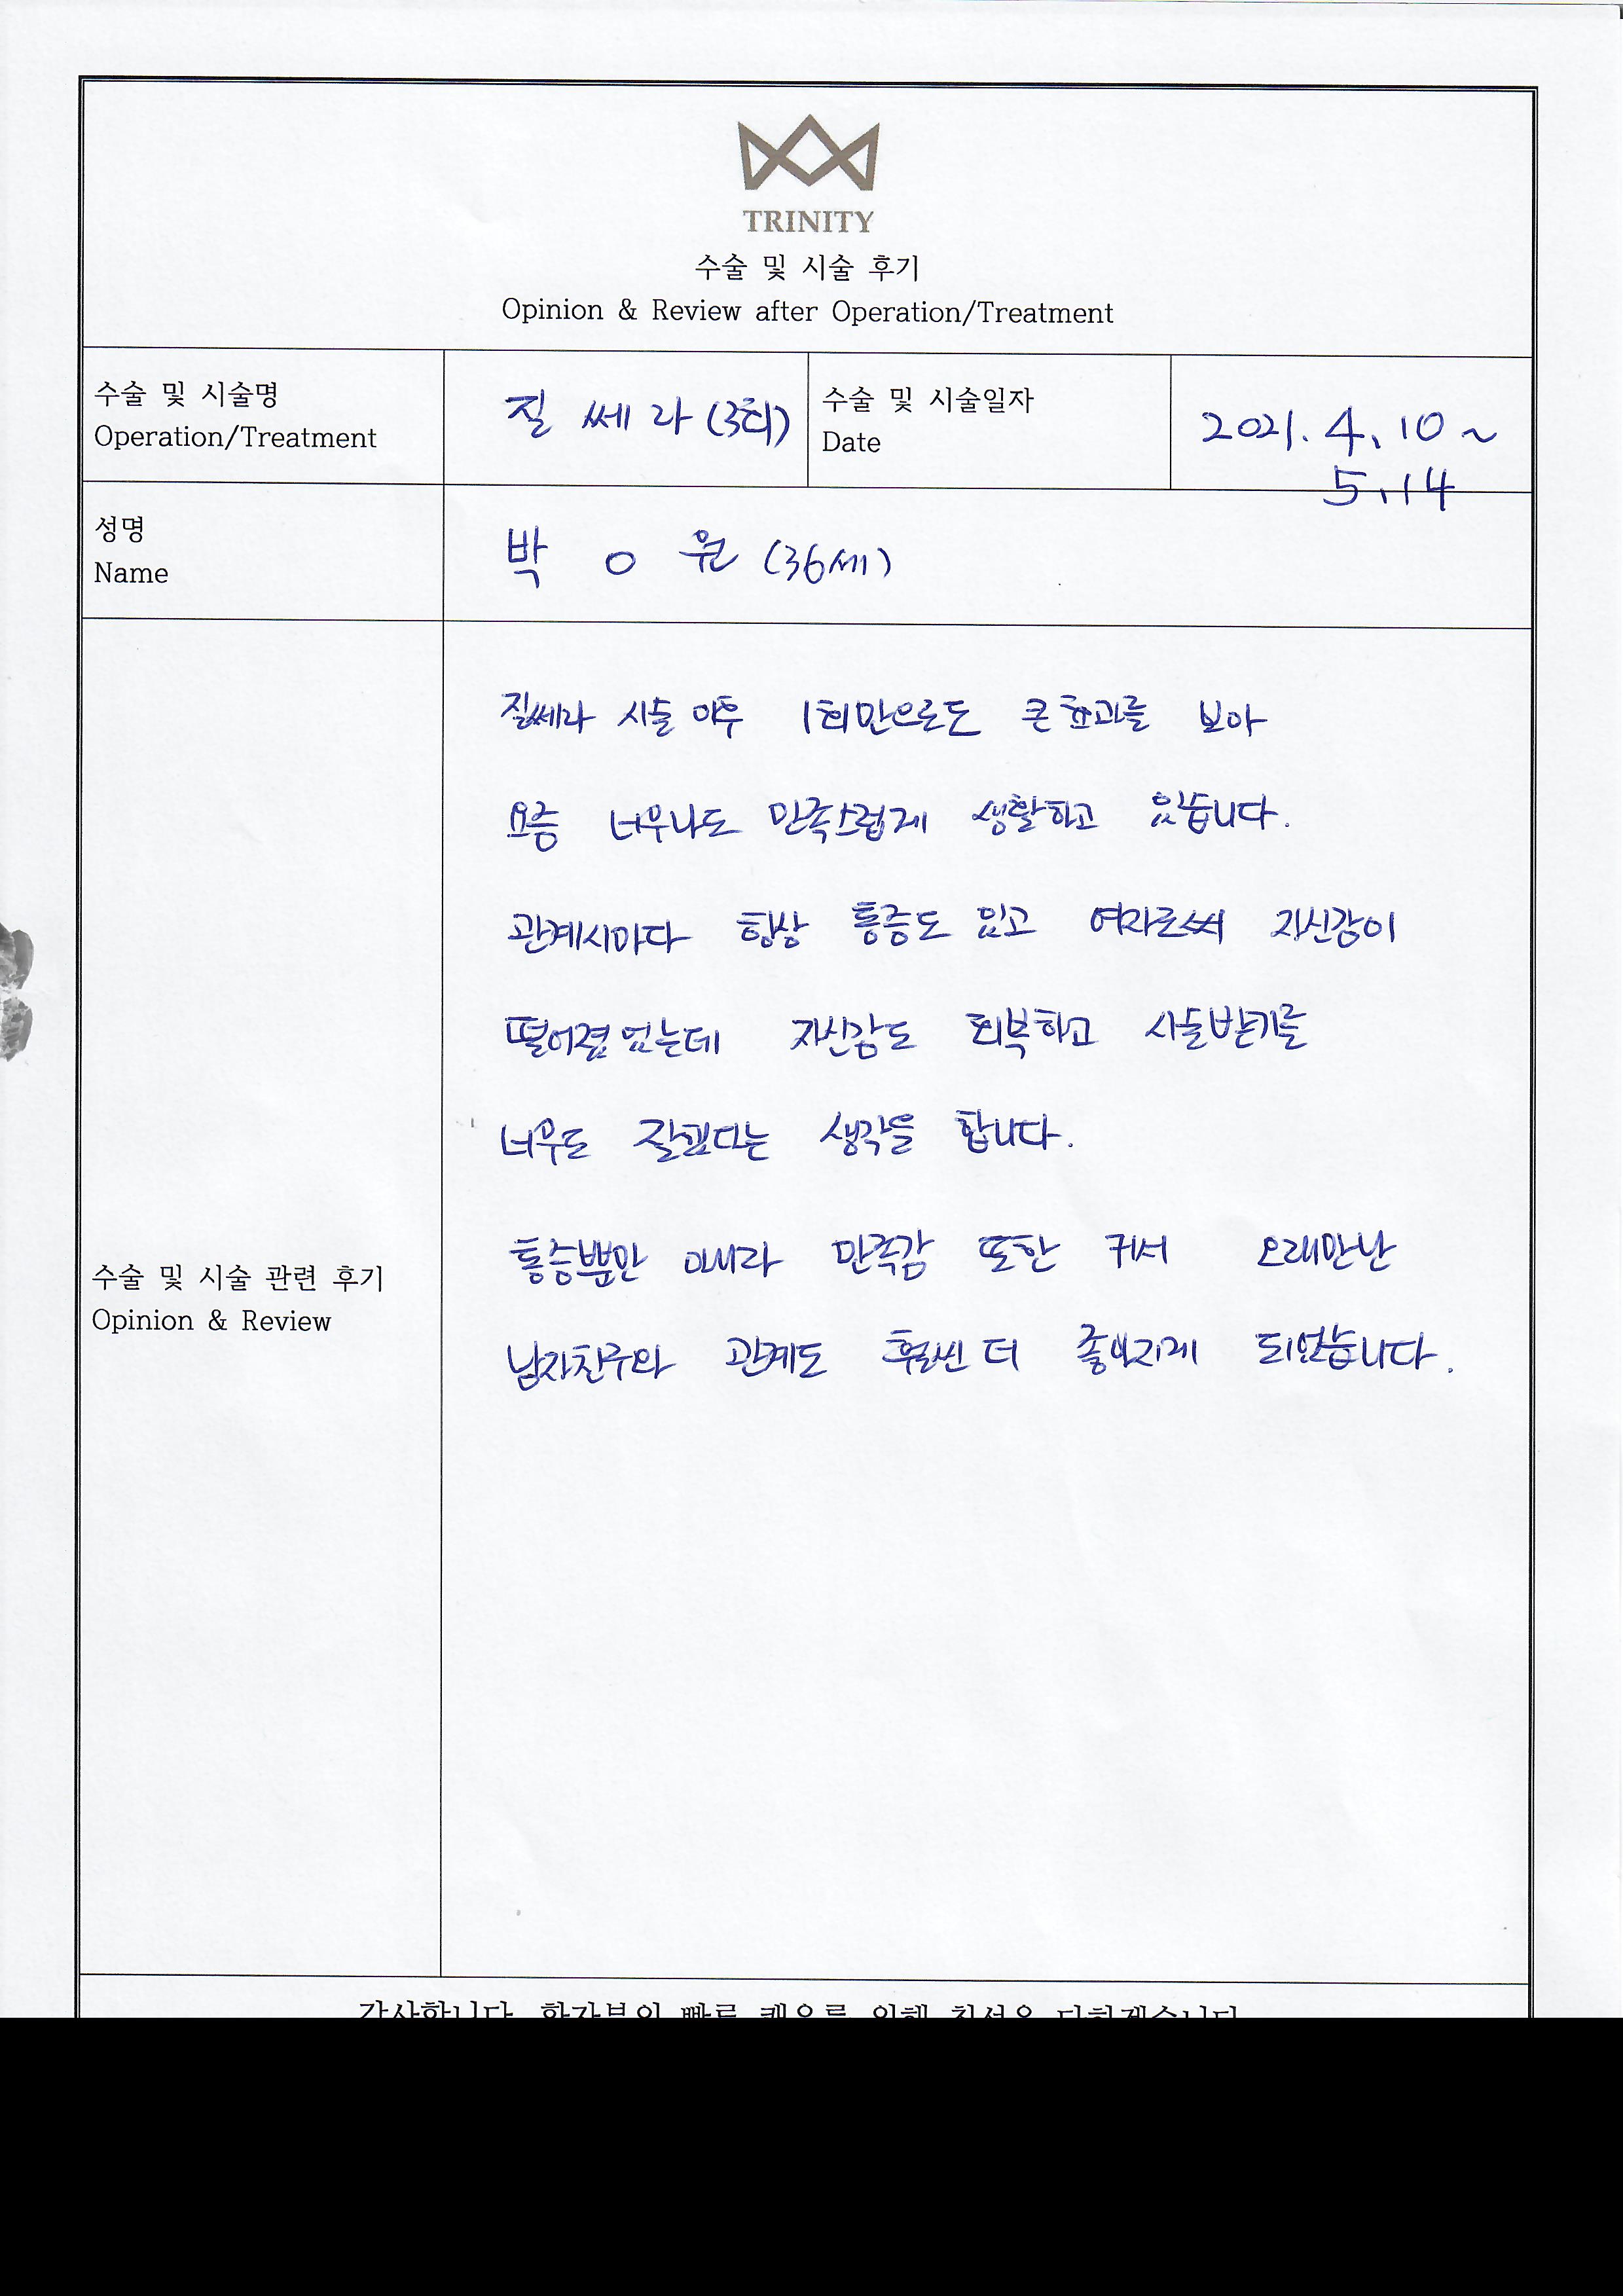 TRINITY
수술 및 시술 후기
Opinion & Review after Operation/Treatment
수술 및 시술명
Operation/Treatment
질 쎄 라 (3회)
수술 및 시술일자
Date
2021. 4. 10 ~
5. 14
성명
Name
박 O 원 (36세)
질쎄라 시술 이후 1회만으로도 큰 효과를 보아
요즘 너무나도 만족스럽게 생활하고 있습니다.
관계시마다 항상 통증도 있고 여자로써 자신감이
떨어졌었는데 자신감도 회복하고 시술받기를
너무도 잘했다는 생각을 합니다.
통증뿐만 아니라 만족감 또한 커서 오래만난
남자친구와 관계도 훨씬 더 좋아지게 되었습니다.
수술 및 시술 관련 후기
Opinion & Review
감사합니다. 환자분의 빠른 쾌유를 위해 최선을 다하겠습니다